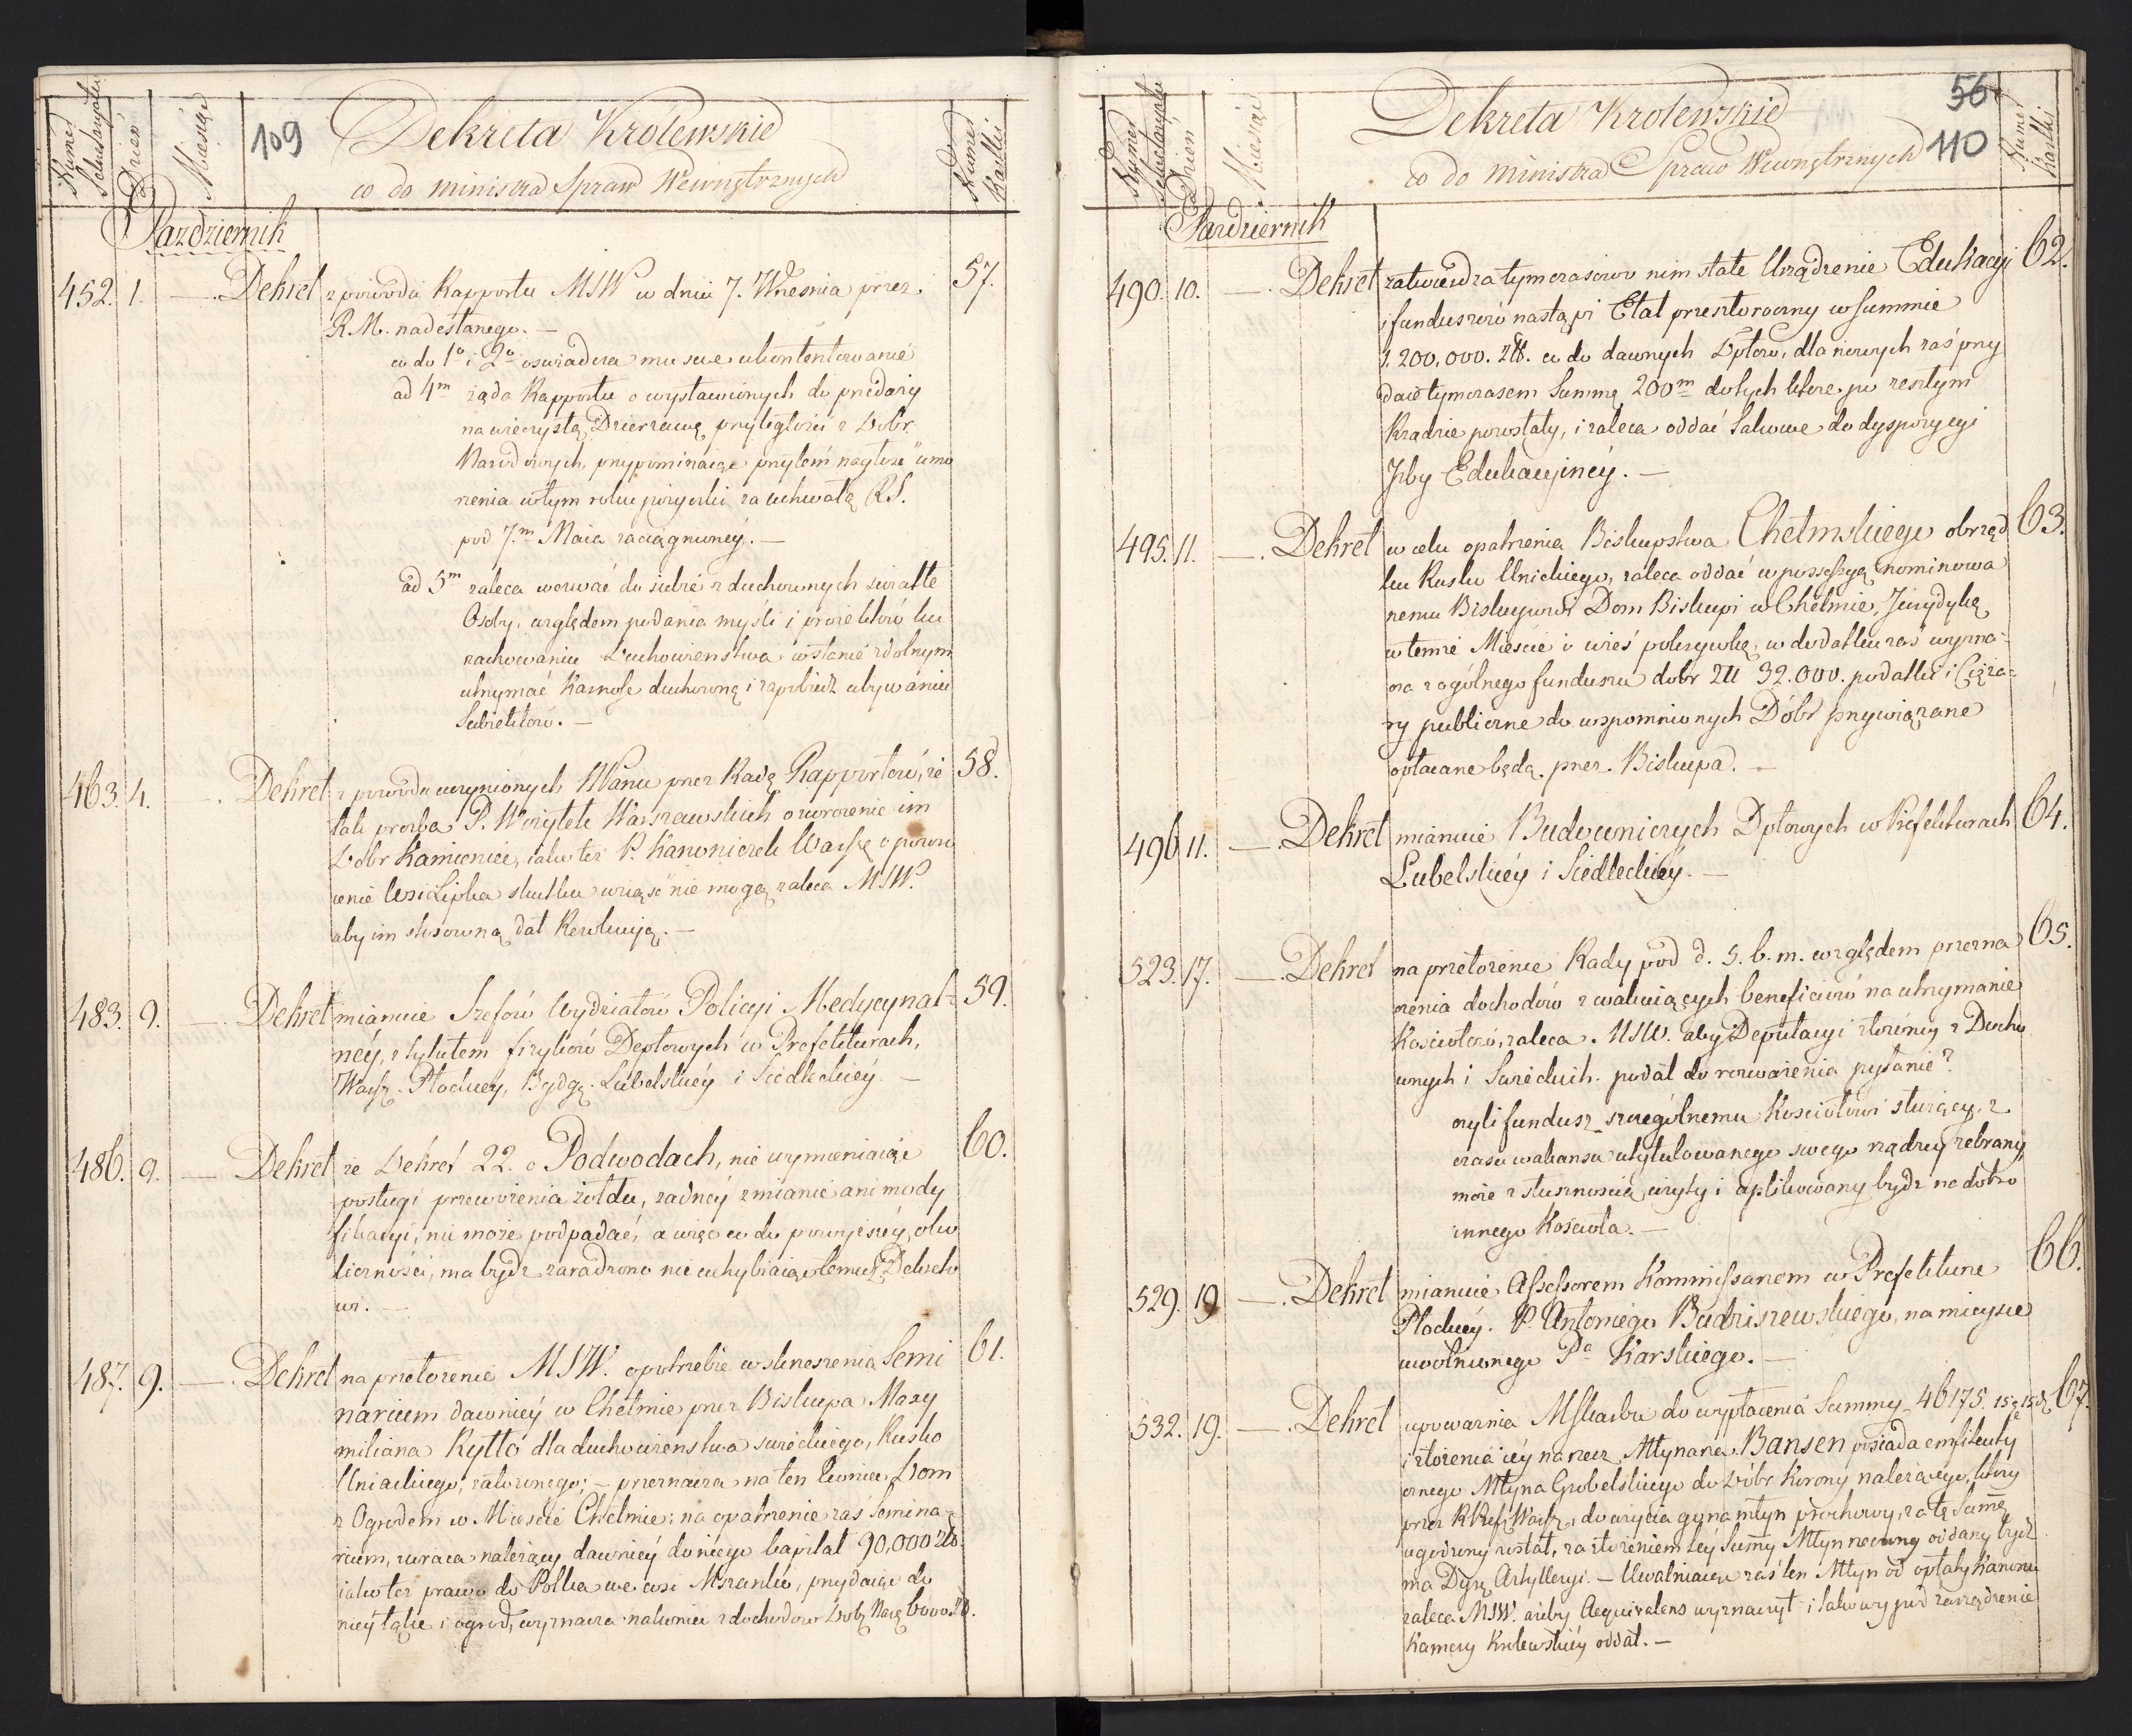 Numer Sekretaryatu
Dzień
Miesiąc
109
Dekreta Krolewskie
co do Ministra Spraw Wewnętrznych
Numer Kartki
Pazdziernik
452. 1. — . Dekret z powodu Rapportu MSW w dniu 7. Wrzesnia przez 57.
R.M. nadesłanego. —
co do 1o i 2o oswiadcza mu swe ukontentowanie
ad 4m ząda Rapportu o wystawionych do przedazy
na wieczystą Dzierzawę przyległosci z Dobr
Narodowych, przypominaiąc przytem nagłosć umo
rzenia w tym roku pożyczki za uchwałą RS.
pod 7.m Maia zaciągnioney. —
ad 5m zaleca wezwać do siebie z duchownych swiatłe
Osoby, względem podania mysli i proiektów ku
zachowaniu Duchowienstwa w stanie zdolnym
utrzymać karność duchowną i zapobiedz ubywaniu
Subiektów. —
463. 4. — . Dekret z powodu uczynionych KPanu przez Radę Rapportów, że 58.
tak prozba P. Wizytek Warszawskich o zwrocenie im
Dobr Kamienice, iako też P. Kanoniczek Warsz. o powro
cenie wsi Lipka skutku wziąść nie mogą zaleca MSW.
aby im stosowną dał Rezolucyą. —
483. 9. — . Dekret mianuie Szefów Wydziałów Policyi Medycynal= 59.
néy, z tytułem fizyków Deptowych w Prefekturach,
Warsz. Płockiey, Bydg. Lubelskiéy i Siedleckiéy. —
486. 9. — Dekret że Dekret 22. o Podwodach, nie wymieniaiąc 60.
posługi przewożenia żołdu, żadnéy zmianie ani mody
fikacyi, nie może podpadać, a więc co do powyższéy oko
liczności, ma bydz zaradzono nie uchybiaiąc temuż Dekreto
wi. —
487. 9. — . Dekret na przełożenie MSW. o potrzebie wskrzeszenia Semi 61.
narium dawniéy w Chełmie przez Biskupa Maxy
miliana Ryłło dla duchowienstwa swieckiego, Rusko
Uniackiego, założonego; — przeznacza na ten koniec Dom
z Ogrodem w Miescie Chełmie; na opatrzenie zaś Semina=
rium, zwraca należący dawniéy do niego kapitał 90,000 zł.
iako też prawo do Folwa we wsi Mszanko, przydaiąc do
niéy łąkę i ogród, wyznacza nakoniec z dochodow Dobr Nar. 6000 zł.

Numer Sekretaryatu
Dzień
Miesiąc
56
110
Dekreta Krolewskie
co do Ministra Spraw Wewnętrznych
Numer Kartki
Pazdziernik
490. 10. — . Dekret zatwierdza tymczasowo nim stałe Urządzenie Edukacyi 62.
i funduszów nastąpi Etat przeszłoroczny w Summie
1.200,000. złł. co do dawnych Dptow, dla nowych zaś przy
daie tymczasem Summę 200m do tych które po zeszłym
Rządzie pozostały, i zaleca oddać takowe do dyspozycyi
Izby Edukacyjnéy. —
495. 11. — . Dekret w celu opatrzenia Biskupstwa Chełmskiego obrząd 63.
ku Rusko Unickiego, zaleca oddać w possessyą nominowa
nemu Biskupowi Dom Biskupi w Chełmie, Jurydykę
w temże Miescie i wieś pokrzywkę, w dodatku zaś wyzna-
cza z ogólnego funduszu dobr złł 32.000. podatki i Cięża=
ry publiczne do wspomnionych Dóbr przywiązane
opłacane będą przez Biskupa. —
496 11. — . Dekret mianuie Budowniczych Dptowych w Prefekturach 64.
Lubelskiéy i Siedleckiéy. —
523. 17. — . Dekret na przełożenie Rady pod d. 5. b.m. względem przezna 65.
czenia dochodów z wakuiących beneficiów na utrzymanie
Kościołów, zaleca MSW. aby Deputacyi złożonéy z Ducho
wnych i Swieckich podał do rozważenia pytanie?
czyli fundusz szczególnemu Kosciołowi służący, z
czasu wakansu utytułowanego swego rządzcy zebrany,
może z słusznoscią użyty i aplikowany bydz na dobro
innego Koscioła. —
529. 19 — . Dekret mianuie Assessorem Kommissarzem w Prefekturze 66.
Płockiéy. P. Antoniego Budziszewskiego, na mieysce
uwolnionego Pa Karskiego. —
532. 19. — . Dekret upoważnia MSkarbu do wypłacenia Summy 46175. 15 g 67.
i złożenia iéy na rzecz Młynarza Bansen posiadacza emfiteuty
cznego Młyna Grobelskiego do Dóbr Korony należącego, który
przez RPref. Warsz. do użycia go na młyn prochowy, za tę Sumę
ugodzony został, za złożeniem téy Sumy Młyn rzeczony oddany bydz
ma Dyr. Artylleryi. — Uwalniaiąc zaś ten Młyn od opłaty kanonu
zaleca MSW. ażeby Aequivalens wyznaczył i takowy pod zarządzenie
Kamery Krolewskiéy oddał. —